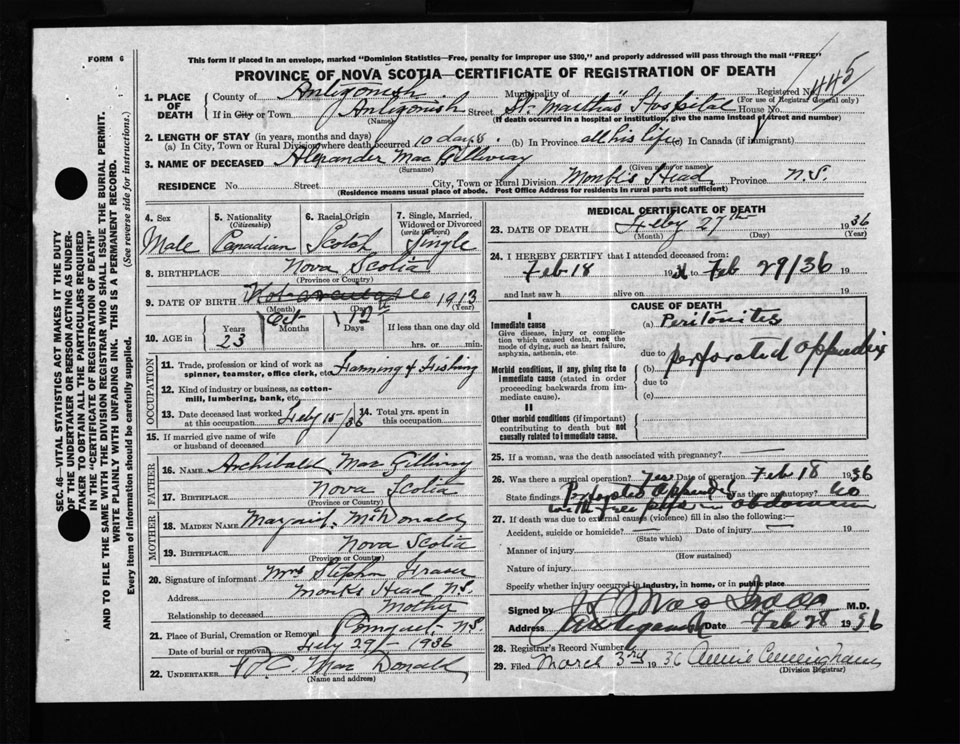 FORM 6
This form if placed in an envelope, marked "Dominion Statistics—Free, penalty for improper use $300," and properly addressed will pass through the mail "FREE"
PROVINCE OF NOVA SCOTIA—CERTIFICATE OF REGISTRATION OF DEATH
Registered No. 445
(For use of Registrar General only)
1. PLACE OF DEATH
County of Antigonish Municipality of
If in City or Town Antigonish Street St. Martha's Hospital House No.
(Name) (If death occurred in a hospital or institution, give the name instead of street and number)
2. LENGTH OF STAY (in years, months and days)
(a) In City, Town or Rural Division where death occurred 10 days. (b) In Province all his life (c) In Canada (if immigrant)
3. NAME OF DECEASED Alexander Mac Gillivray
(Surname) (Given name or names)
RESIDENCE No. Street City, Town or Rural Division Monk's Head Province N.S.
(Residence means usual place of abode. Post Office Address for residents in rural parts not sufficient)
SEC. 46—VITAL STATISTICS ACT MAKES IT THE DUTY
OF THE UNDERTAKER OR PERSON ACTING AS UNDER-
TAKER TO OBTAIN ALL THE PARTICULARS REQUIRED
IN THE "CERTIFICATE OF REGISTRATION OF DEATH"
AND TO FILE THE SAME WITH THE DIVISION REGISTRAR WHO SHALL ISSUE THE BURIAL PERMIT.
WRITE PLAINLY WITH UNFADING INK. THIS IS A PERMANENT RECORD.
Every item of information should be carefully supplied. (See reverse side for instructions.)
4. Sex
Male
5. Nationality
(Citizenship)
Canadian
6. Racial Origin
Scotch
7. Single, Married, Widowed or Divorced
(write the word)
Single
8. BIRTHPLACE Nova Scotia
(Province or Country)
9. DATE OF BIRTH 1913
(Month) (Day) (Year)
Oct 12
10. AGE in
Years Months Days If less than one day old
23 hrs. or min.
OCCUPATION
11. Trade, profession or kind of work as spinner, teamster, office clerk, etc. Farming & Fishing
12. Kind of industry or business, as cotton-mill, lumbering, bank, etc.
13. Date deceased last worked at this occupation Feby 15/36
14. Total yrs. spent in this occupation
15. If married give name of wife or husband of deceased
FATHER
16. NAME Archibald Mac Gillivray
17. BIRTHPLACE Nova Scotia
(Province or Country)
MOTHER
18. MAIDEN NAME McDonald
19. BIRTHPLACE Nova Scotia
(Province or Country)
20. Signature of informant Mrs Stephen Fraser
Address Monk's Head N.S.
Relationship to deceased Mother
21. Place of Burial, Cremation or Removal Pomquet N.S.
Date of burial or removal Feby 29 1936
22. UNDERTAKER Mac Donald
(Name and address)
MEDICAL CERTIFICATE OF DEATH
23. DATE OF DEATH Feby 27th 1936
(Month) (Day) (Year)
24. I HEREBY CERTIFY that I attended deceased from:
Feb 18 19 to Feb 29/36 19
and last saw h alive on 19
CAUSE OF DEATH
I
Immediate cause
Give disease, injury or complication which caused death, not the mode of dying, such as heart failure, asphyxia, asthenia, etc.
(a) Peritonitis
due to
Morbid conditions, if any, giving rise to immediate cause (stated in order proceeding backwards from immediate cause).
(b) perforated appendix
due to
(c)
II
Other morbid conditions (if important) contributing to death but not causally related to immediate cause.
25. If a woman, was the death associated with pregnancy?
26. Was there a surgical operation? Yes Date of operation Feb 18 1936
State findings Perforated appendix Was there an autopsy? No
with free pus in abdomen
27. If death was due to external causes (violence) fill in also the following:-
Accident, suicide or homicide? Date of injury 19
(State which)
Manner of injury
(How sustained)
Nature of injury
Specify whether injury occurred in industry, in home, or in public place
Signed by M.D.
Address Antigonish Date Feb 28 1936
28. Registrar's Record Number
29. Filed March 3rd 1936 Annie Cunningham
(Division Registrar)